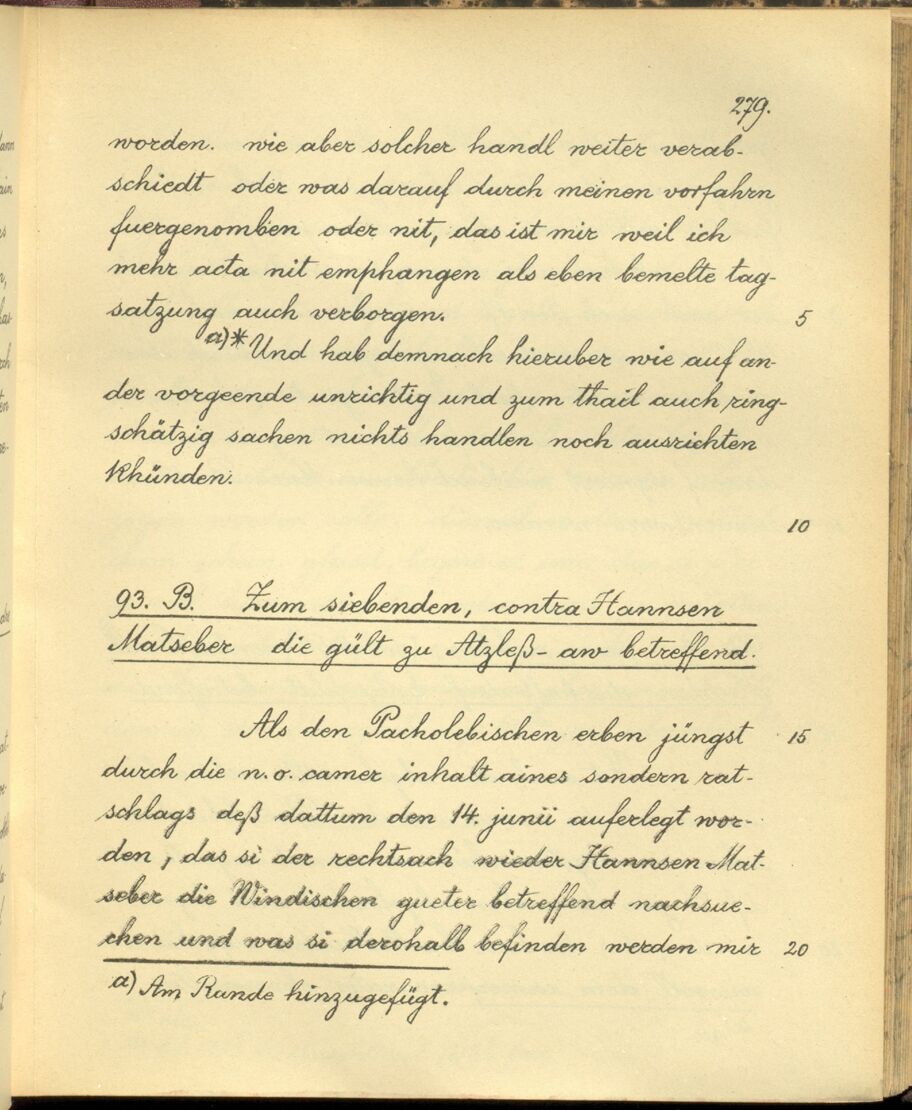 279.
worden. wie aber solcher handl weiter verab-
schiedt oder was darauf durch meinen vorfahrn
fuergenomben oder nit, das ist mir weil ich
mehr acta nit emphangen als eben bemelte tag-
satzung auch verborgen. 5
a)* Und hab demnach hieruber wie auf an-
der vorgeende unrichtig und zum thail auch ring-
schätzig sachen nichts handlen noch ausrichten
khünden.
10
93. B. Zum siebenden, contra Hannsen
Matseber die gült zu Atzleß-aw betreffend.
Als den Pacholebischen erben jüngst 15
durch die n.o. camer inhalt aines sondern rat-
schlags deß dattum den 14. junii auferlegt wor-
den, das si der rechtsach wieder Hannsen Mat-
seber die Windischen gueter betreffend nachsue-
chen und was si derohalb befinden werden mir 20
a) Am Runde hinzugefügt.